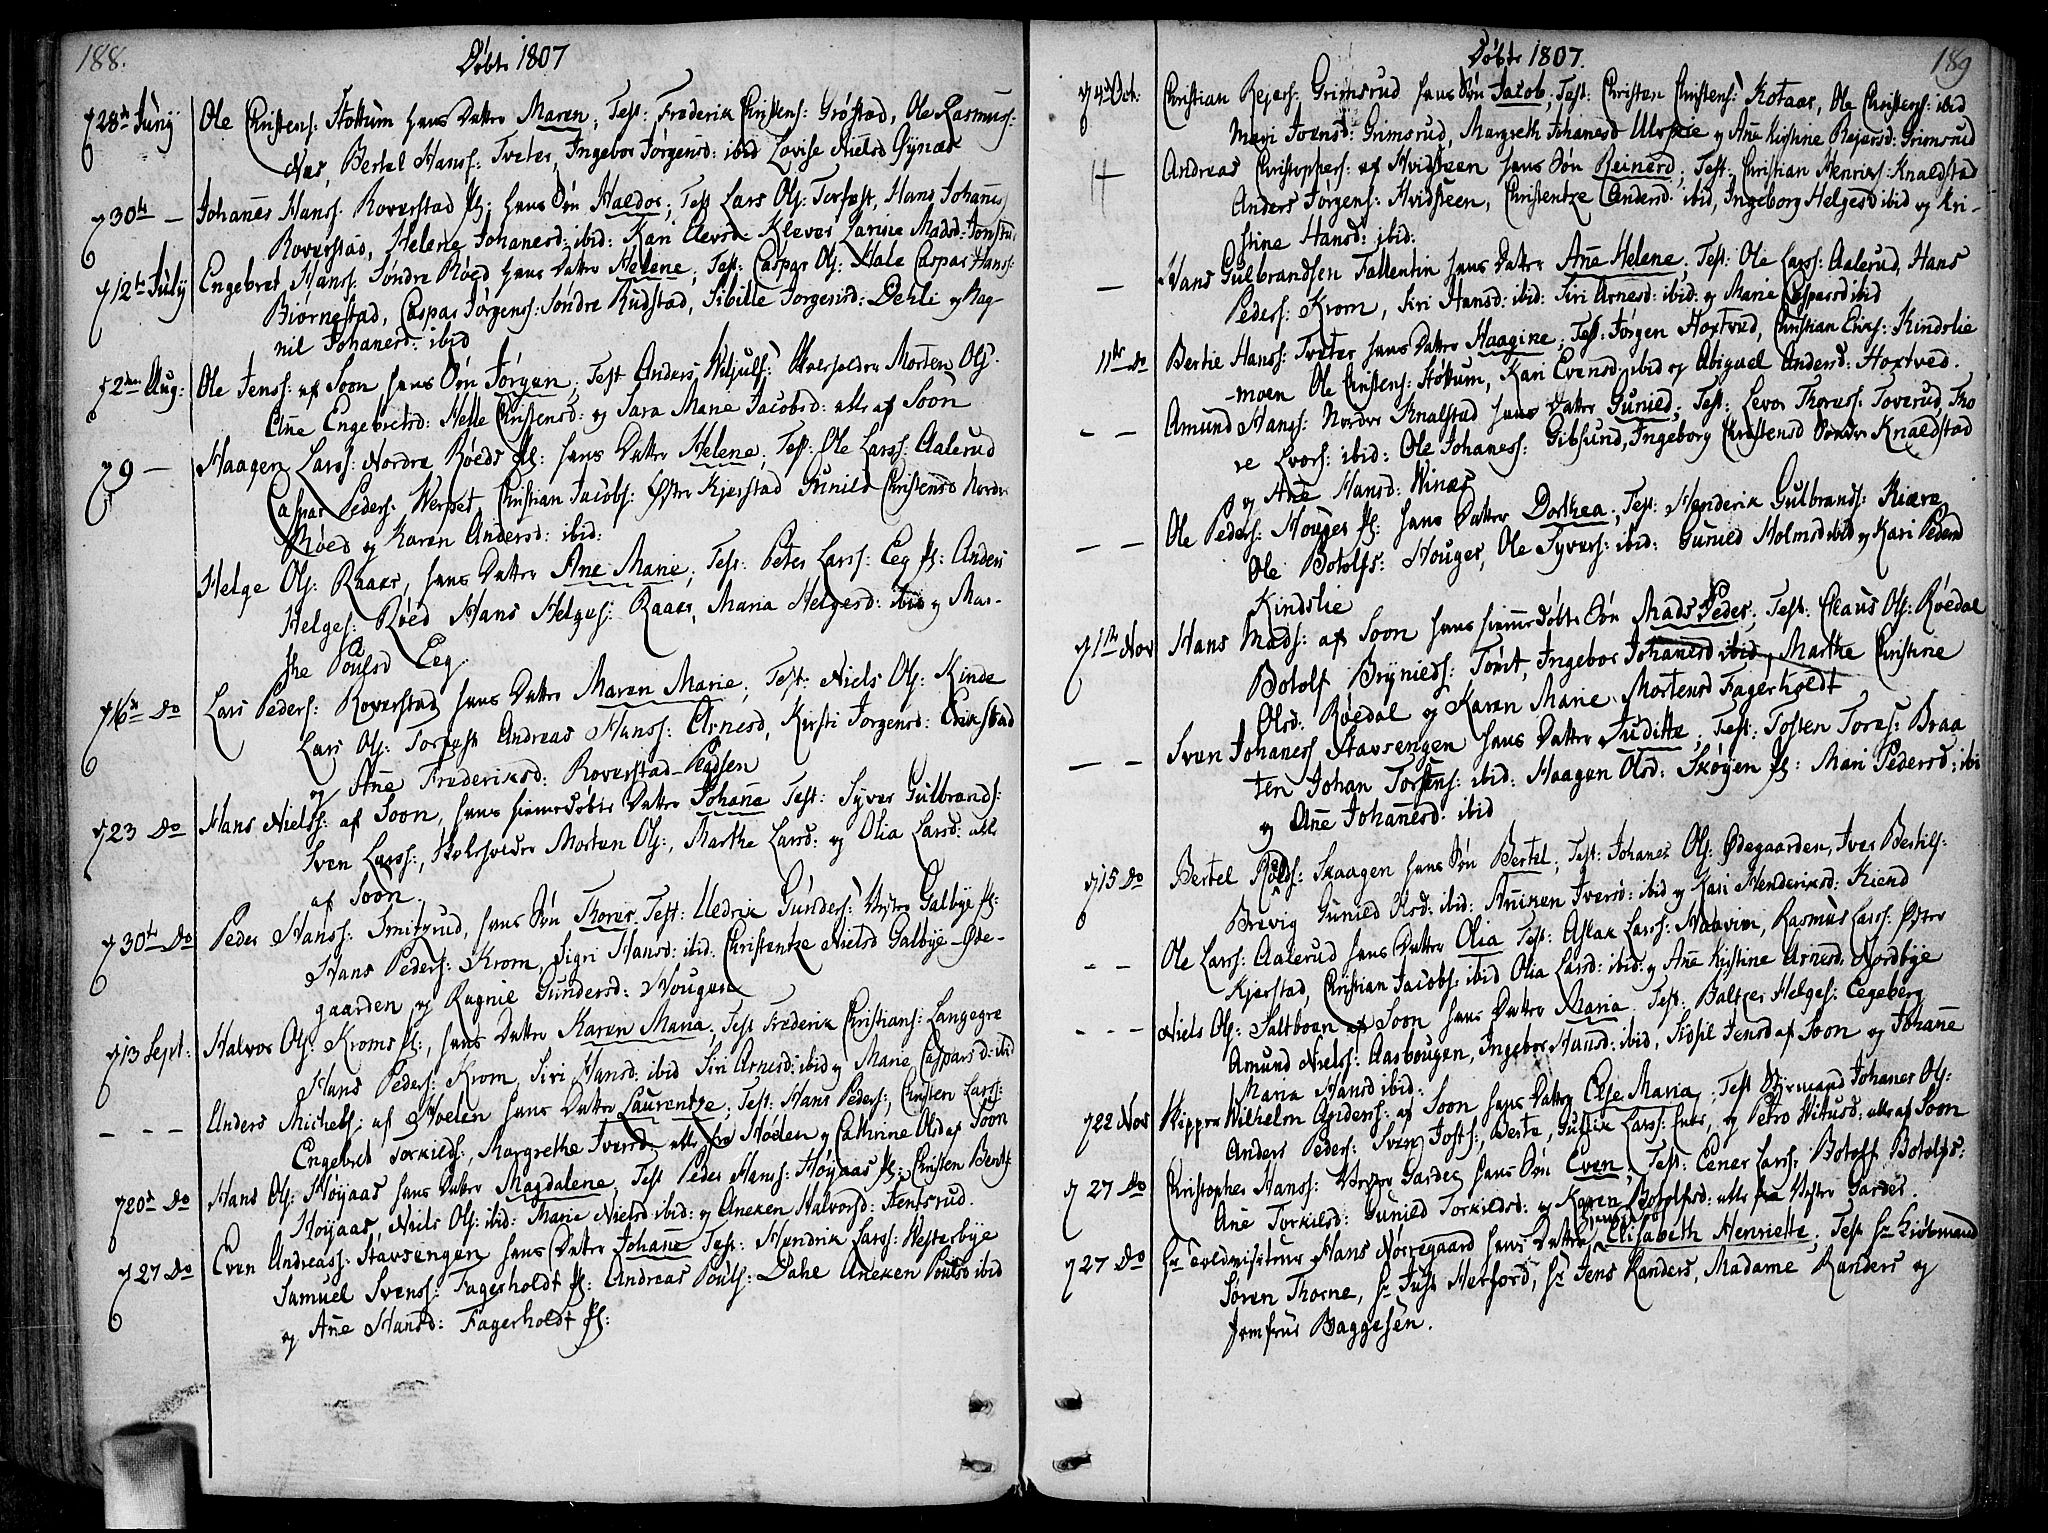 188.
Døbte 1807
d 28de Juny Ole Christens: Stottum hans Datter Maren; Test: Frederik Christens: Grøstad, Ole Rasmuss:
Næs, Bertel Hanss: Tveter, Ingebor Jørgensd: ibid Lovise Nielsd
d 30te — Johanes Hanss: Roverstad Pl: hans Søn Haldor; Test Lars Ols: Torfest, Hans Johaness
Roverstad, Helene Johanesd: ibid: Kari Elevsd: Klever Larine Madsd:
d 12te July Engebret Hanss: Søndre Røed hans Datter Helene; Test: Caspar Ols: Hale Caspar Hanss:
Biørnestad, Caspar Jørgenss: Søndre Rudstad, Sibille Jørgensd: Dehli og Rag-
nil Johanesd: ibid
d 2den Aug: Ole Jenss: af Soon hans Søn Jørgen; Test Anders Ols:
Ane Engebretsd: Helle Christensd: og Sara Marie Jacobsd: alle af Soon
d 9 — Haagen Larss: Nordre Røeds Pl: hans Datter Helene; Test: Ole Larss: Aalerud
Caspar Peders: Werpet, Christian Jacobs: Østre Kjerstad Gunild Christensd Nordre
Røed og Karen Andersd: ibid:
Helge Ols: Raaer, hans Datter Ane Marie; Test: Peter Larss: Eeg Pl: Anders
Helges: Røed Hans Helges: Raaer, Maria Helgesd: ibid og Mar-
the Poulsd Eeg
d 16de Do Lars Peders: Roverstad hans Datter Maren Marie; Test: Niels Ols: Kinde
Lars Ols: Torfest Andreas Hanss: Arnesd, Kirsti Jørgensd: Erikstad
og Ane Frederiksd: Roverstad
d 23 Do Hans Nielss: af Soon, hans hiemmedøbte Datter Johane Test: Syver Gulbrands:
Sven Larss:, Morten Ols:, Marthe Larsd: og Olia Larsd: alle
af Soon.
d 30te Do Peder Hanss: Smitzrud, hans Søn Thorer; Test: Gunders: Vestre Galbye Pl:
Hans Peders: Krom, Sigri Hansd: ibid: Christentze Nielsd Galbye-Øde-
gaarden og Ragnil Gundersd: Hougen
d 13 Sept: Halvor Ols: Kroms Pl:, hans Datter Karen Maria; Test Frederik Christians: Langegre
Hans Peders: Krom, Siri Hansd: ibid Siri Arnesd: ibid og Marie Caspars d: ibid
— — — Anders Michels: af Hoelen hans Datter Laurentze; Test: Hans Peders:, Christen Larss:
Engebret Torkilds:, Margrethe Iversd alle fra Hoelen og Cathrine Olsd af Soon
d 20de Do Hans Ols: Høyaas hans Datter Magdalene; Test Peder Hanss: Høyaas Pl: Christen Bentz
Høyaas, Niels Ols: ibid: Marie Nielsd ibid: og Aneken Halvorsd: Henfsrud.
d 27 Do Even Andreass: Stavsengen hans Datter Johane Test: Hendrik Larss: Westerbye
Samuel Svenss: Fagerholdt Pl: Andreas Pouls: Dahe Aneken Poulsd ibid
og Ane Hansd: Fagerholdt Pl:
Døbte 1807.
189
d 4de Oct: Christian Rejers: Grimsrud hans Søn Jacob; Test: Christen Christens: Kotaar, Ole Christens: ibid
Mari Joensd: Grimsrud, Margreth Johanesd og Ane Kirstine Rejersd: Grimsrud
Andreas Christophers: af Hvidsteen hans Søn Reinerd; Test: Christian Henriks: Knaldstad
Anders Jørgens: Hvidsteen, Christentze Andersd: ibid, Ingeborg Helgesd ibid og Kri-
stine Hansd: ibid:
— Hans Gulbrandsen Tallentin hans Datter Ane Helene; Test: Ole Larss: Aalerud, Hans
Peders: Krom, Siri Hansd: ibid: Siri Arnesd: ibid: og Marie Caspersd ibid
11te Do Bertie Hanss: Tveter hans Datter Haagine; Test: Jørgen Hoxtved, Christian Erics: Kindslie
moen Ole Christens: Stottum, Kari Evensd: ibid og Abiguel Andersd: Hoxtved.
— — Amund Hanss: Nordre Knalstad hans Datter Gunild; Test: Levor Thoress: Toverud, Tho
re Lvors: ibid: Ole Johaness: Gibsund, Ingeborg Christensd Søndre Knaldstad
og Ane Hansd: Winæs
— — Ole Peders: Houger Pl: hans Datter Dorthea; Test: Henderik Gulbrands: Kiære
Ole Botolfs: Houger, Ole Syvers: ibid: Gunild Holmsd ibid og Kari Pedersd
Kindslie
d 1ste Nov Hans Mads: af Soon hans hiemmedøbte Søn Mads Peder; Test: Claus Ols: Røedal
Botolf Brynilds: Tomt, Ingebor Johanesd ibid, Marthe Christine
Olsd: Røedal og Karen Marie Mortensd Fagerholdt
— — Sven Johaness Stavsengen hans Datter Juditte; Test: Tosten Tores: Braa
ten Johan Torstens: ibid: Haagen Olsd: Skøyen Pl: Mari Pedersd: ibi
og Ane Johanesd: ibid
d 15 Do Bertel Skaagen hans Søn Bertel; Test: Johanes Ols: Ødegaarden, Iver Bertils:
Brevig Gunild Olsd: ibid: Aniken Iversd: ibid og Kari Henderiksd: Kiend
— — Ole Larss: Aalerud hans Datter Olia Test: Aslak Larss: Haavim, Rasmus Larss: Østre
Kjerstad, Christian Jacobs: ibid Olia Larsd: ibid: og Ane Kirstine Arnesd: Nordbye
— — — Niels Ols: Saltboen af Soon hans Datter Maria Test: Baltzer Helges: Eegeberg
Amund Nielss: Aasbougen, Ingebor Hansd: ibid, Sissil Jensd af Soon og Johane
Maria Hansd ibid:
d 22 Nov Skipper Wilhelm Anders: af Soon hans Datter Else Maria; Test Styrmand Johanes Ols:
Anders Peders: Sven Josts:, Berte, Gullik Larss: og Petro alle af Soon
d 27 Do Christopher Hanss: Vestre Garder hans Søn Even; Test: Eener Larss: Botolf Botolfs:
Ane Torkilsd: Gunild Torkildsd: og Karen Botolfsd: alle fra Vestre Garder.
d 27 Do Hr Toldvisiteur Hans Nørregaard hans Datter Elisabeth Henriette; Test Hr Kiøbmand
Søren Thorne, Hr Just Herford, Hr Jens Randers, Madame Randers og
Jomfrue Baggesen.